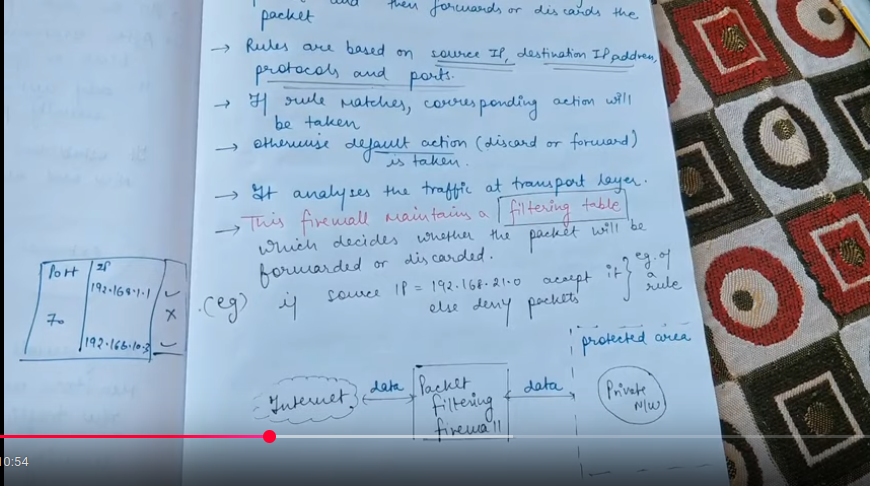 then forwards or discards the
packet
→ Rules are based on source IP, destination IP address,
protocols and ports.
→ If rule matches, corresponding action will
be taken
→ otherwise default action (discard or forward)
is taken.
→ It analyses the traffic at transport layer.
→ This firewall maintains a filtering table
which decides whether the packet will be
forwarded or discarded.
(eg) if source IP = 192.168.21.0 accept it
else deny packets
eg. of
a
rule
Port IP
192.168.1.1 ✓
70 X
192.168.10.3 ✓
protected area
Internet data Packet filtering firewall data Private N/W
10:54